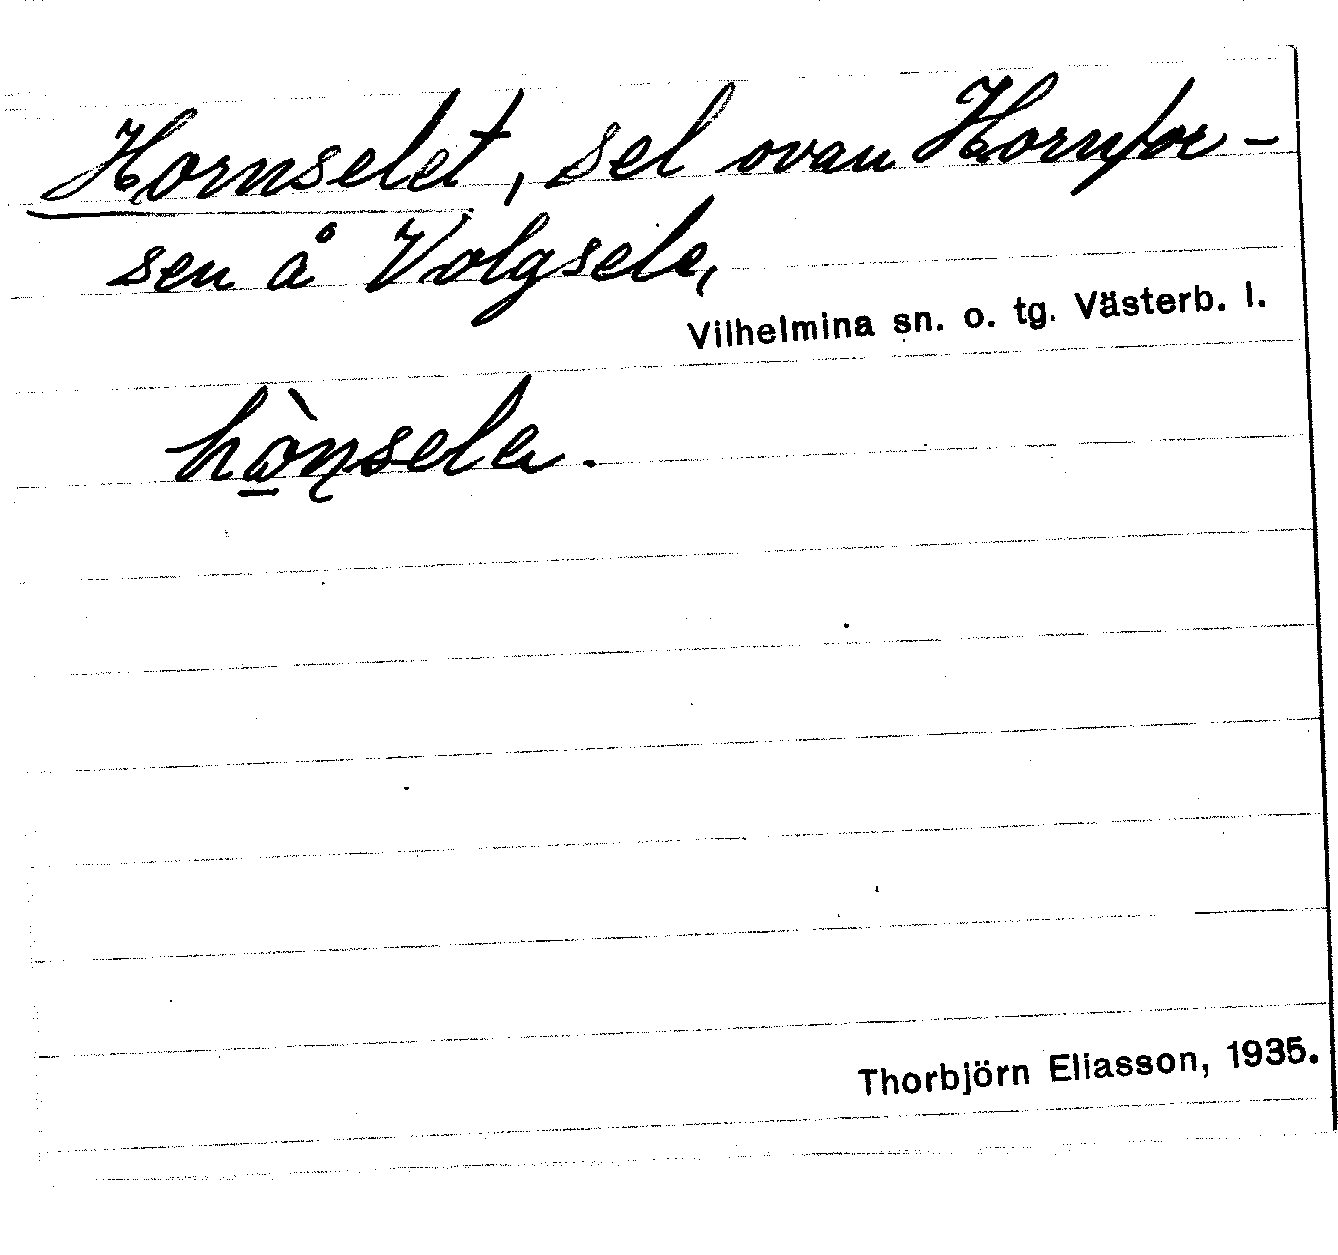 Hornselet, sel ovan Hornfor-
sen å Volgsele,
Vilhelmina sn. o. tg. Västerb. l.
hò̱ṇsele.
Thorbjörn Eliasson, 1935.